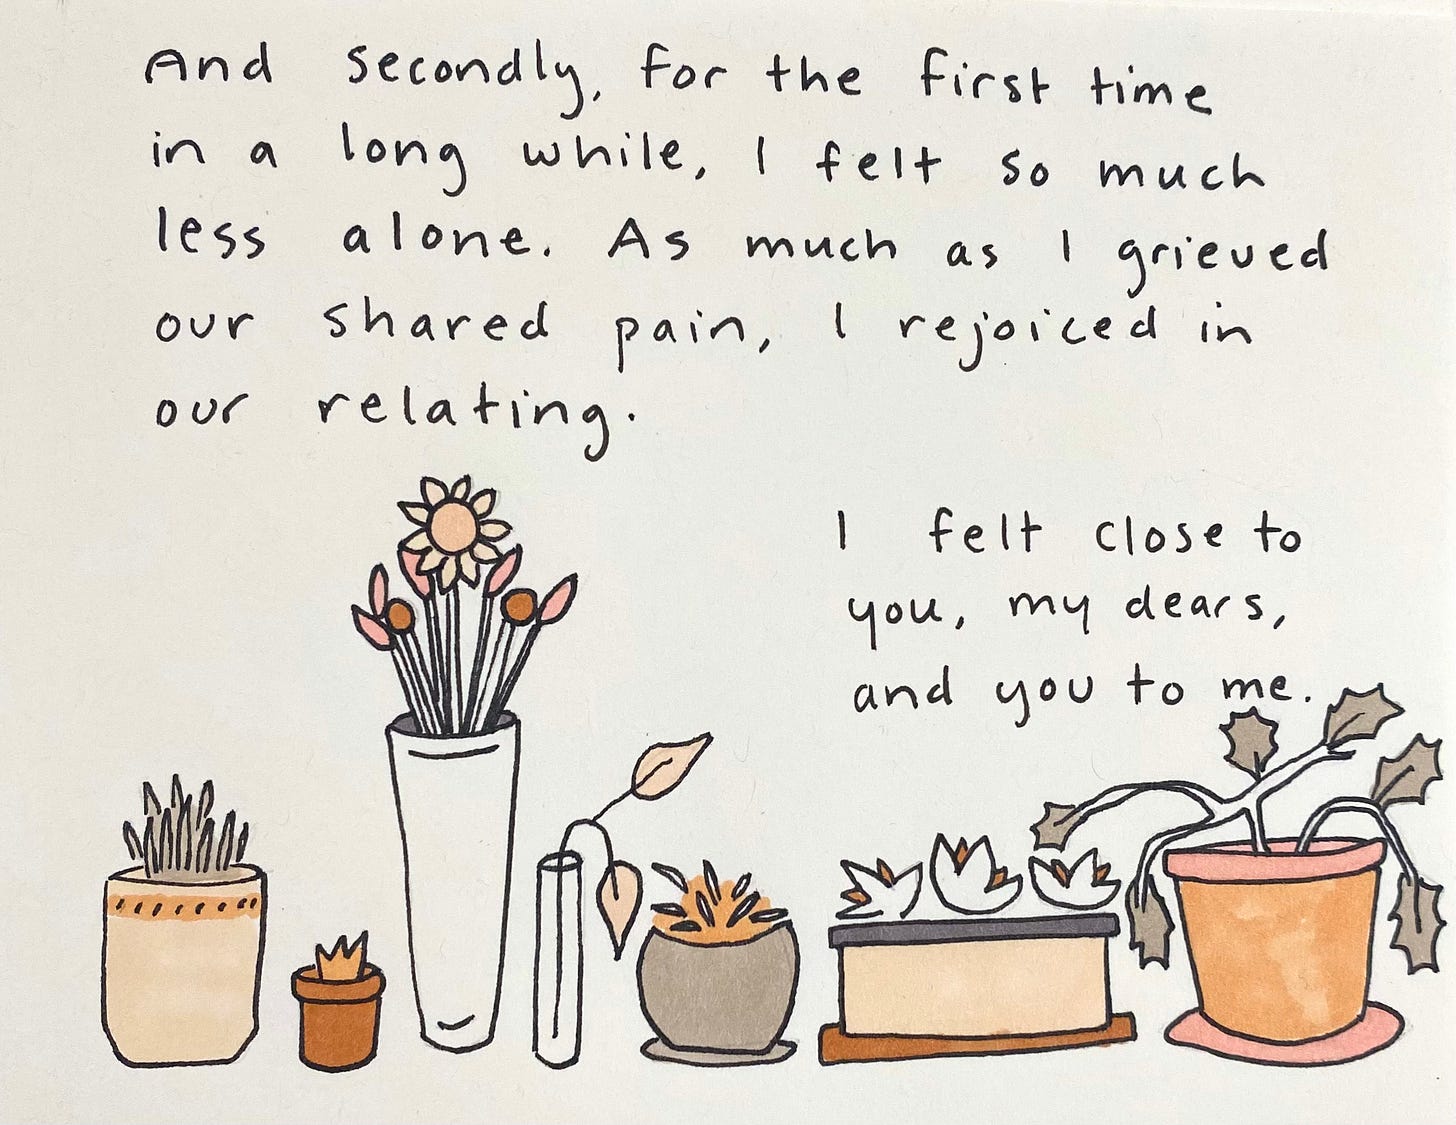 And secondly, for the first time
in a long while, I felt so much
less alone. As much as I grieved
our shared pain, I rejoiced in
our relating.
I felt close to
you, my dears,
and you to me.